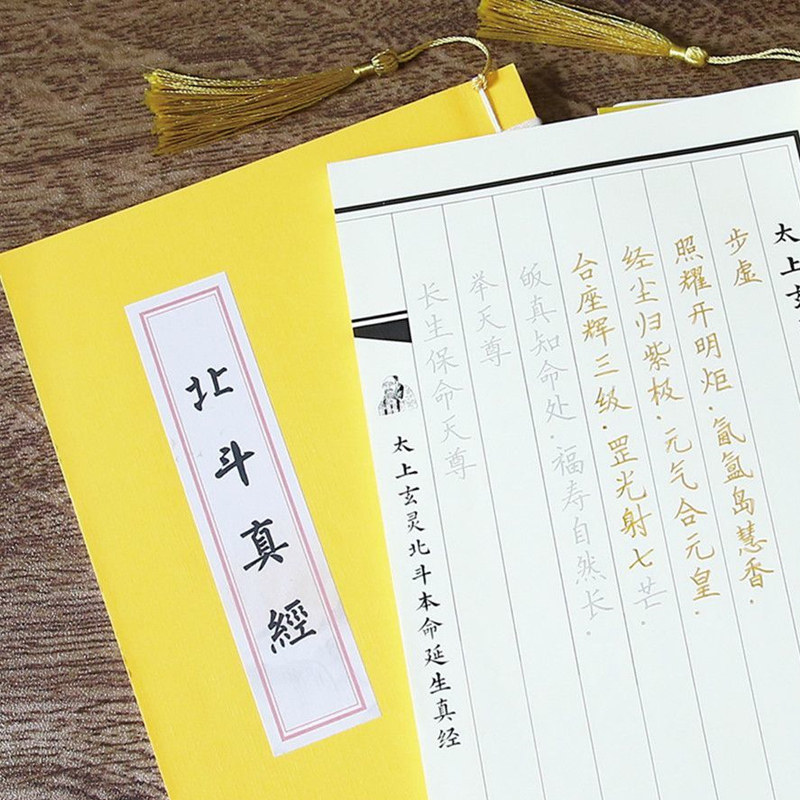 北斗真經
太上玄
步虚
照耀开明炬·氤氲岛慧香·
经尘归紫极·元气合元皇·
台座辉三级·罡光射七芒·
皈真知命处·福寿自然长·
举天尊
长生保命天尊
太上玄灵北斗本命延生真经